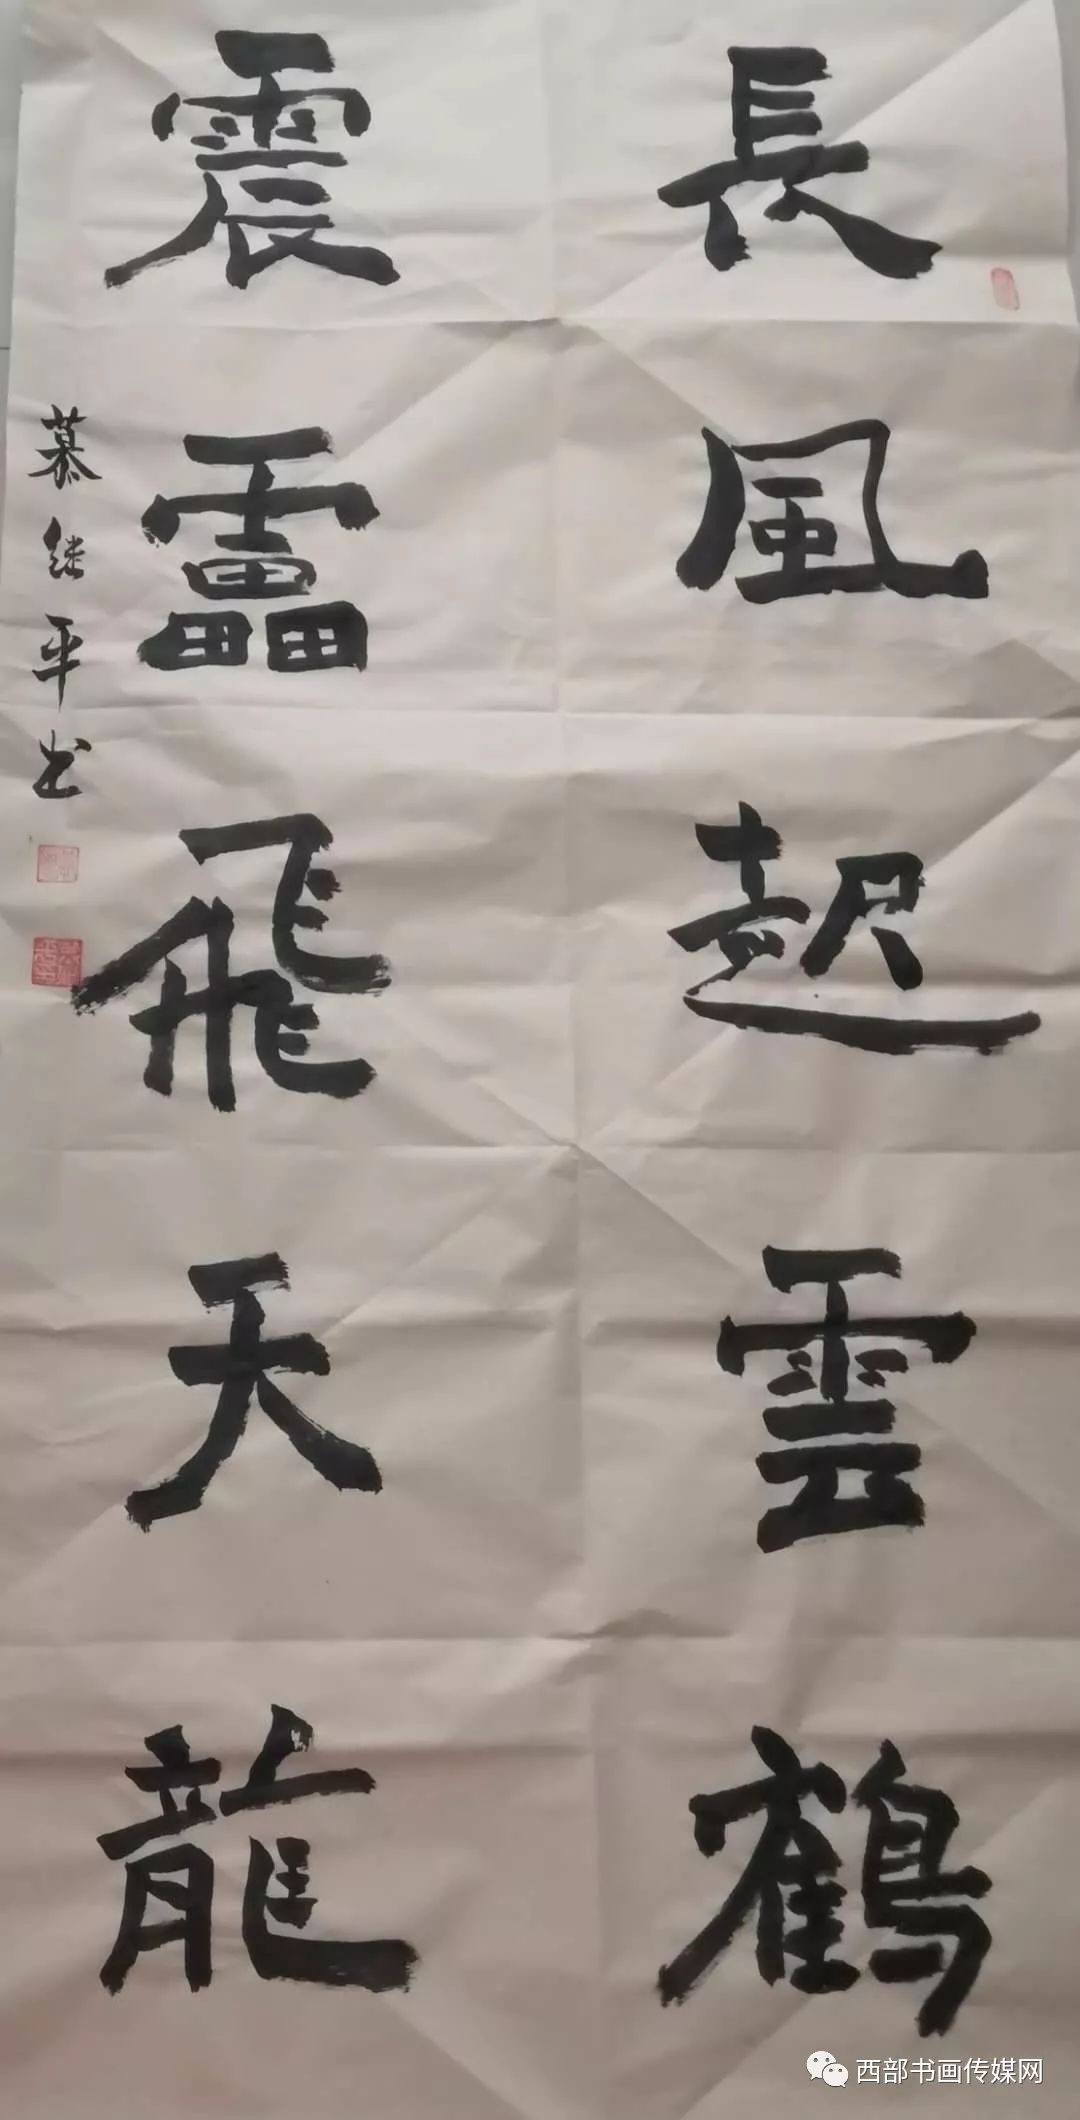 長風起雲鶴
震靁飛天龍
慕继平书
西部书画传媒网